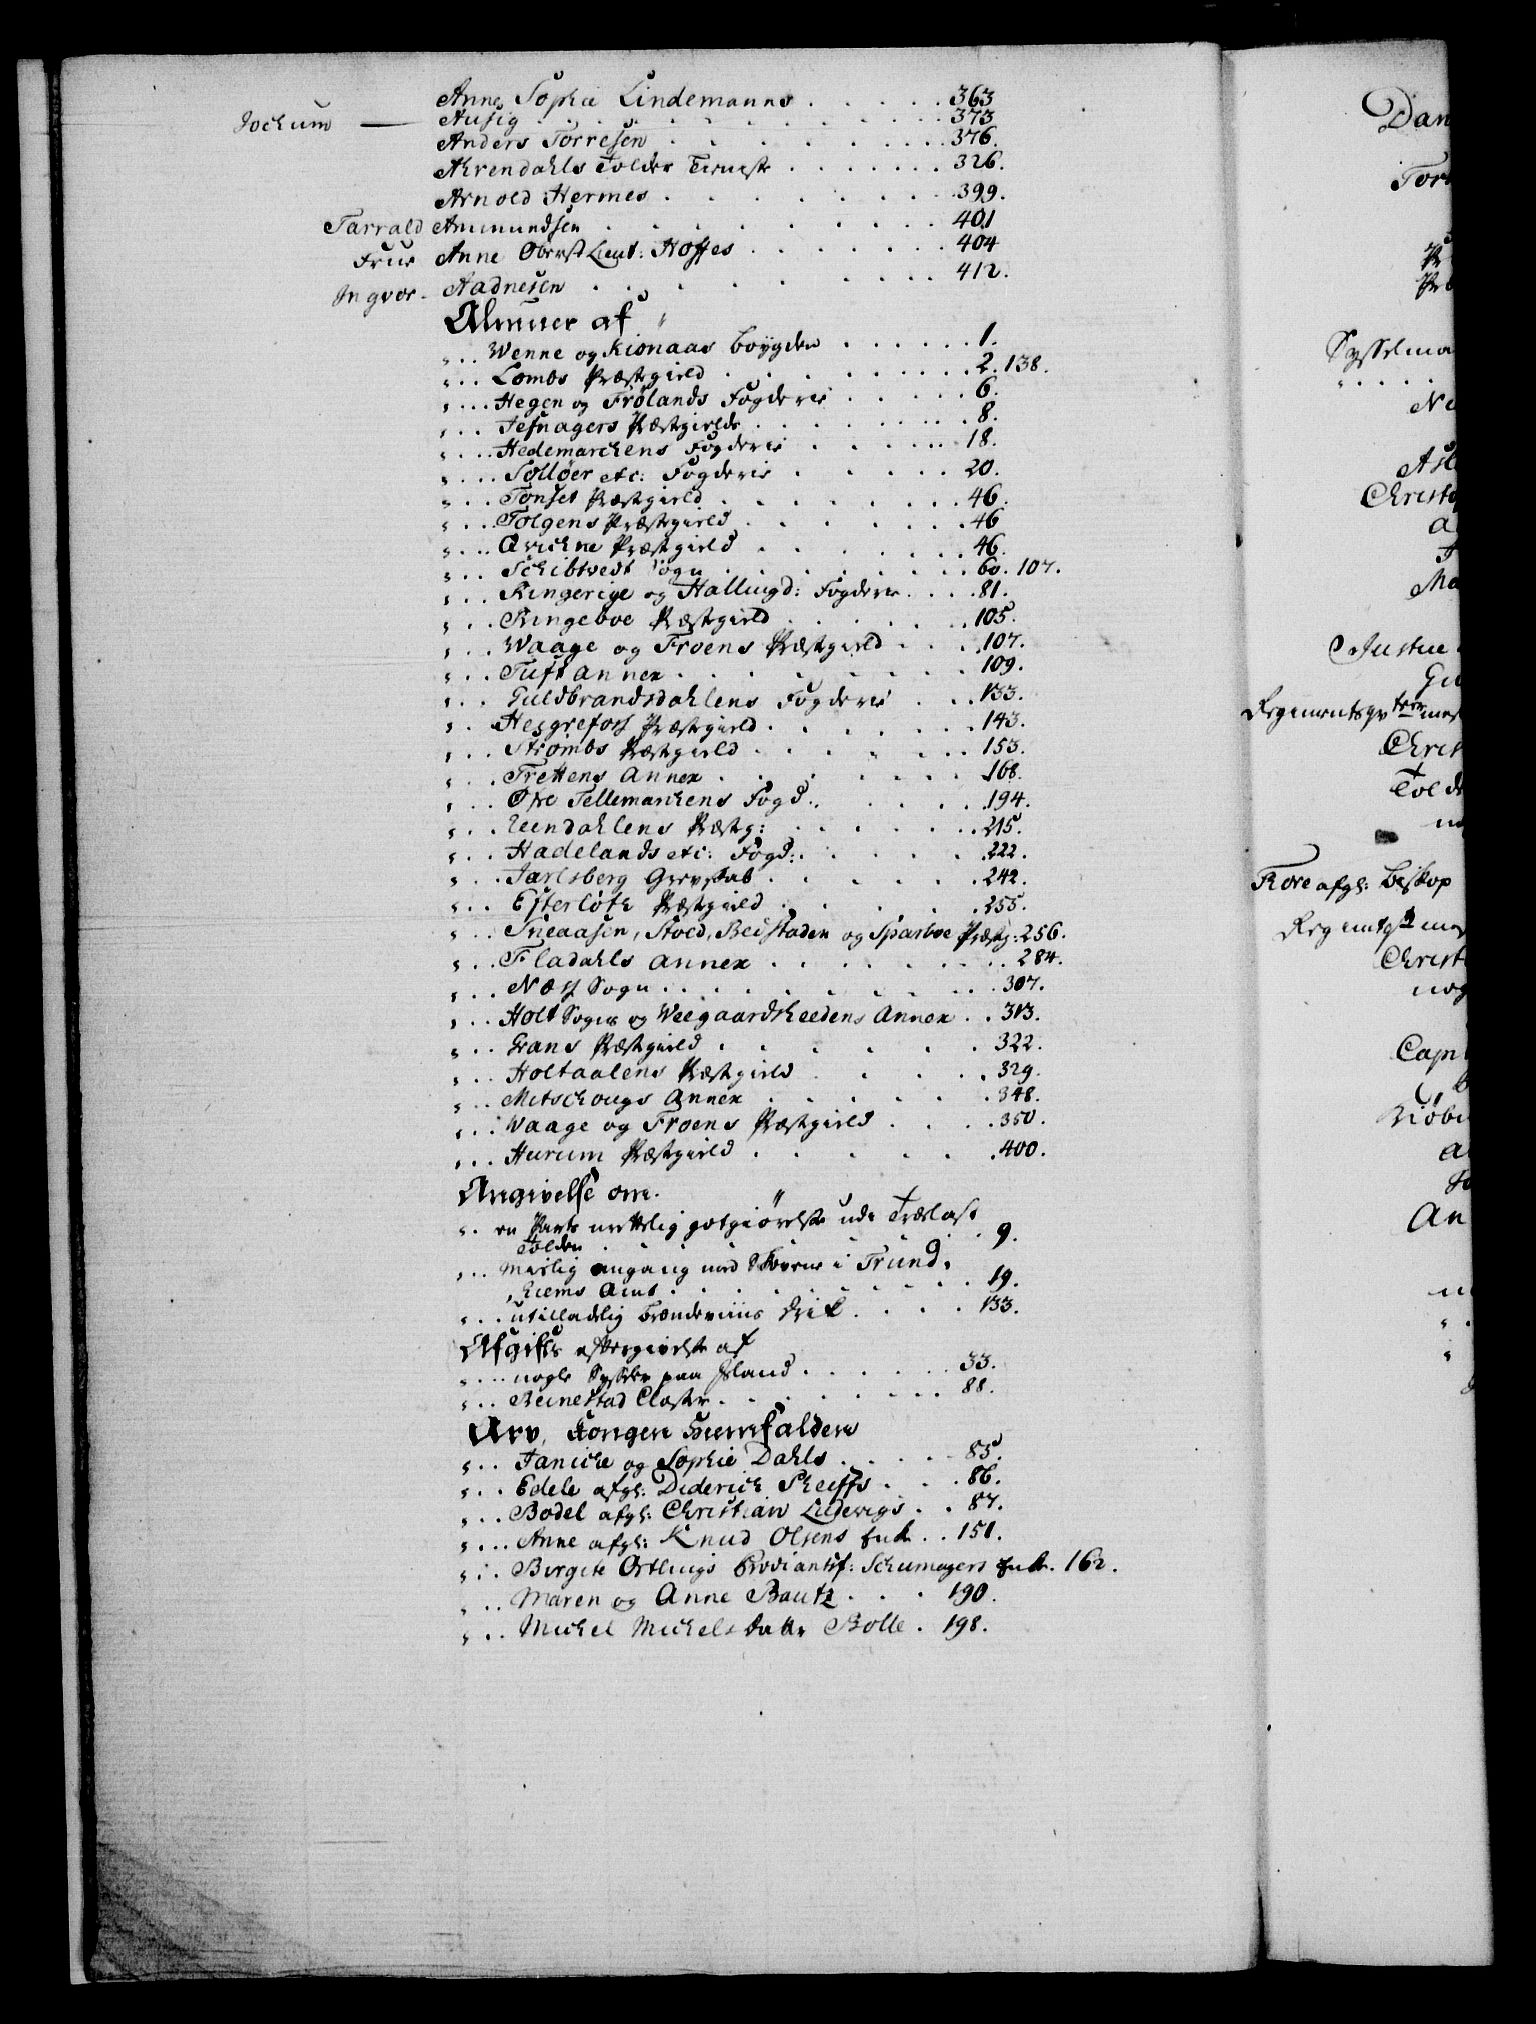 Anne Sophie Lindemanns . . . . . 363
Jochum — Ausig . . . . . . . . 373
Anders Torresen . . . . . . . 376.
Ahrendahls Tolder Tieneste . . . . . . . 326.
Arnold Hermes . . . . . . . 399.
Tarrald Ammundsen . . . . . . . 401
Frue Anne Oberst Lieut: Hoffes . . . . . . 404
Ingvor - Aadnesen . . . . . . . 412.
Almuer af "
" . . Wenne og Kionaas boygden . . . . . . 1.
" . . Lombs Præstegield . . . . . . . 2. 138.
" . . Hegen og Frölands Fogderie . . . . . 6.
" . . Jefnagers Præstegields . . . . . . 8.
" . . Hedemarckens Fogderie . . . . . 18.
" . . Sollöer etc: Fogderie . . . . . 20.
" . . Tonset Præstegield . . . . . . . 46.
" . . Tolgens Præstegield . . . . . . 46
" . . Qvickne Præstegield . . . . . . 46.
" . . Schibtvedt Sogn . . . . . . . 60. 107.
" . . Ringerige og Hallingd: Fogderie . . . . 81.
" . . Ringeboe Præstegield . . . . . . 105.
" . . Waage og Froens Præstegield . . . . 107.
" . . Tuft annex . . . . . . . 109.
" . . Guldbrandsdahlens Fogderie . . . 133.
" . . Hesgrefoss Præstegield . . . . . . 143.
" . . Strombs Præstegield . . . . . . 153.
" . . Trettens Annex . . . . . . 168.
" . . Ofre Tellemarckens Fogd: . . . . . 194.
" . . Eendahlens Præsteg: . . . . . . 215.
" . . Hadelands etc: Fogd: . . . . . 222.
" . . Jarlsberg Grevskab . . . . . . 242.
" . . Efterlöth Præstegield . . . . . . 255.
" . . Sneaasen, Stoed, Beistaden og Sparboe Præsteg: 256.
" . . Fladahls annex . . . . . . . 284.
" . . Næss Sogn . . . . . . . . 307.
" . . Holt Sogns og Weegaardsheedens Annex . . 313.
" . . Grans Præstegield . . . . . . 322.
" . . Holtaalens Præstegield . . . . . 329.
" . . Metschougs Annex . . . . . . 348.
" . . Waage og Froens Præstegield . . . . 350.
" . . Hurum Præstegield . . . . . . 400.
Angivelse om. "
" . en Parts urettelig godtgiörelse udi Træelast
Tolden . . . . . . . 9.
" . . Misslig omgang med Skovene i Trund,
hiems Amt . . . . . . . 19.
" . . utilladelig brændeviins drik . . . . 133.
Afgifts eftergivelse af
" . . nogle Sysseler paa Island . . . . . 33.
" . . Reinestad Closter . . . . . . . 88.
Arv, Kongen hiemfalden
" . . Janiche og Sophie Dahls . . . . . 85.
" . . Edele afgl: Diderich Sheiffs . . . . 86.
" . . Bodel afgl: Christian Ludevigs . . 87.
" . . Anne afgl: Knud Olsens Enke . . 151.
" . . Birgite Ortlings Proviantsf: Schumagers Enke. 162.
" . . Maren og Anne Bautz . . . 190.
" . . Michel Michelsdatter Bolle . 198.
Dan
Tor
Sysselma
Ne
Christo
a
Ma
Justice
Regimentsqvtermes
Chris
Tolde
Fkore afgl: biskop
Regimtsqtmes
Christ
nog
Capn
Kiöbn
An